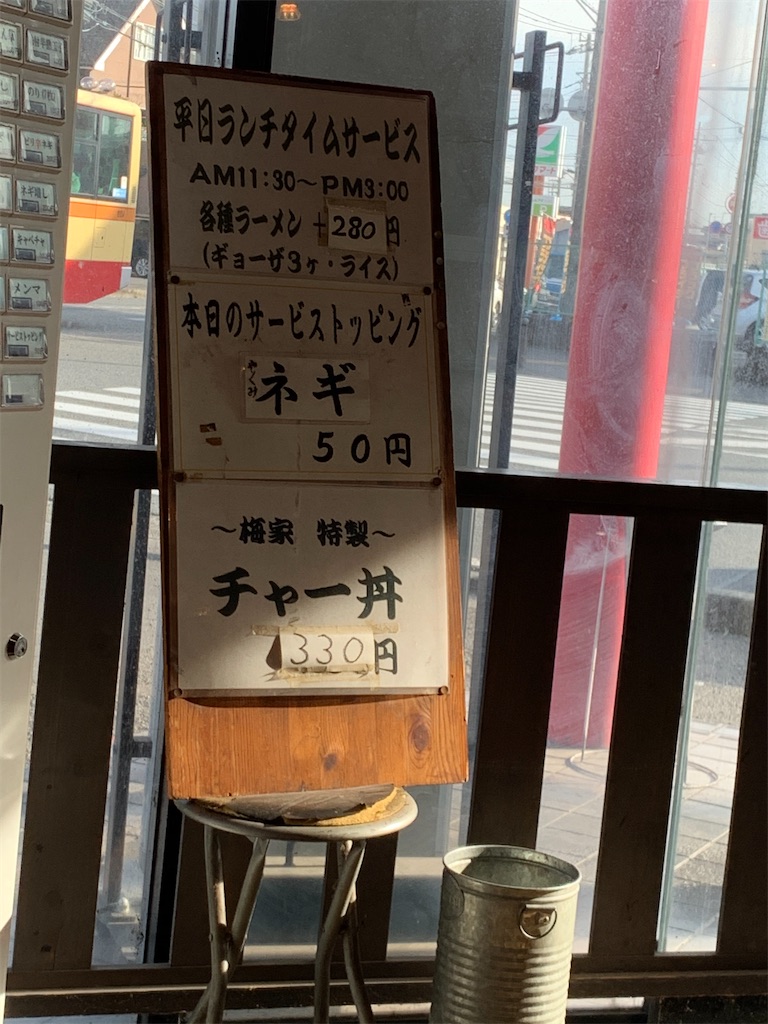 平日ランチタイムサービス
AM11:30～PM3:00
各種ラーメン +280円
(ギョーザ3ヶ・ライス)
本日のサービストッピング
やくみ
ネギ
50円
～梅家 特製～
チャー丼
330円
ネギ増し
キャベチャ
メンマ
サービストッピング